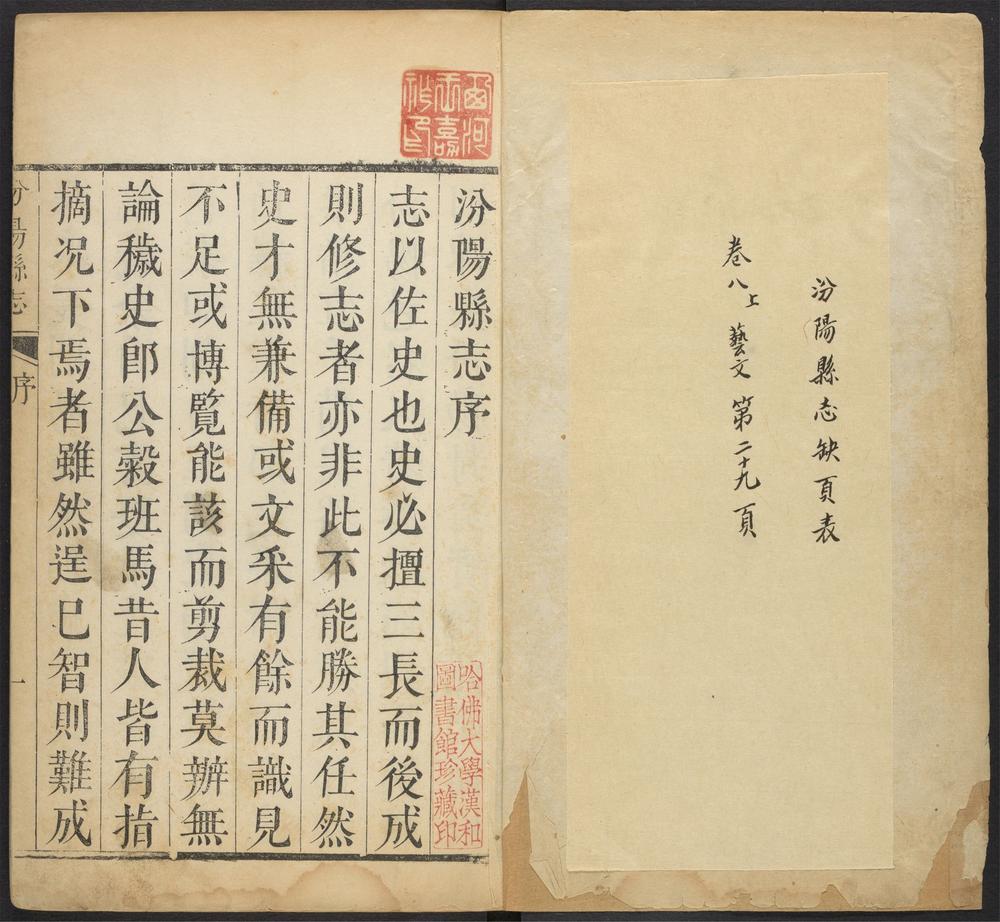 汾陽縣志缺頁表
卷八上 藝文 第二十九頁
汾陽縣志序
志以佐史也史必擅三長而後成
則修志者亦非此不能勝其任然
史才無兼備或文采有餘而識見
不足或博覽能該而剪裁莫辦無
論穢史郎公穀班馬昔人皆有指
摘况下焉者雖然逞巳智則難成
汾陽縣志 序 一
哈佛大學漢和
圖書館珍藏印
西河